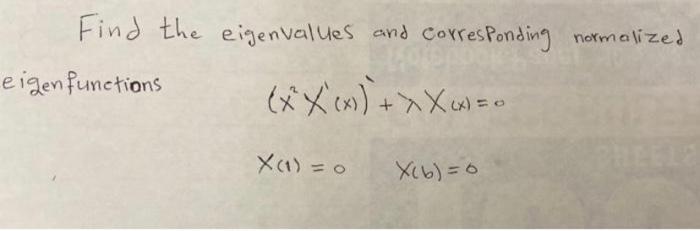 Find the eigenvalues and corresponding normalized
eigenfunctions
(x²X'(x))' + λX(x) = 0
X(1) = 0 X(b) = 0